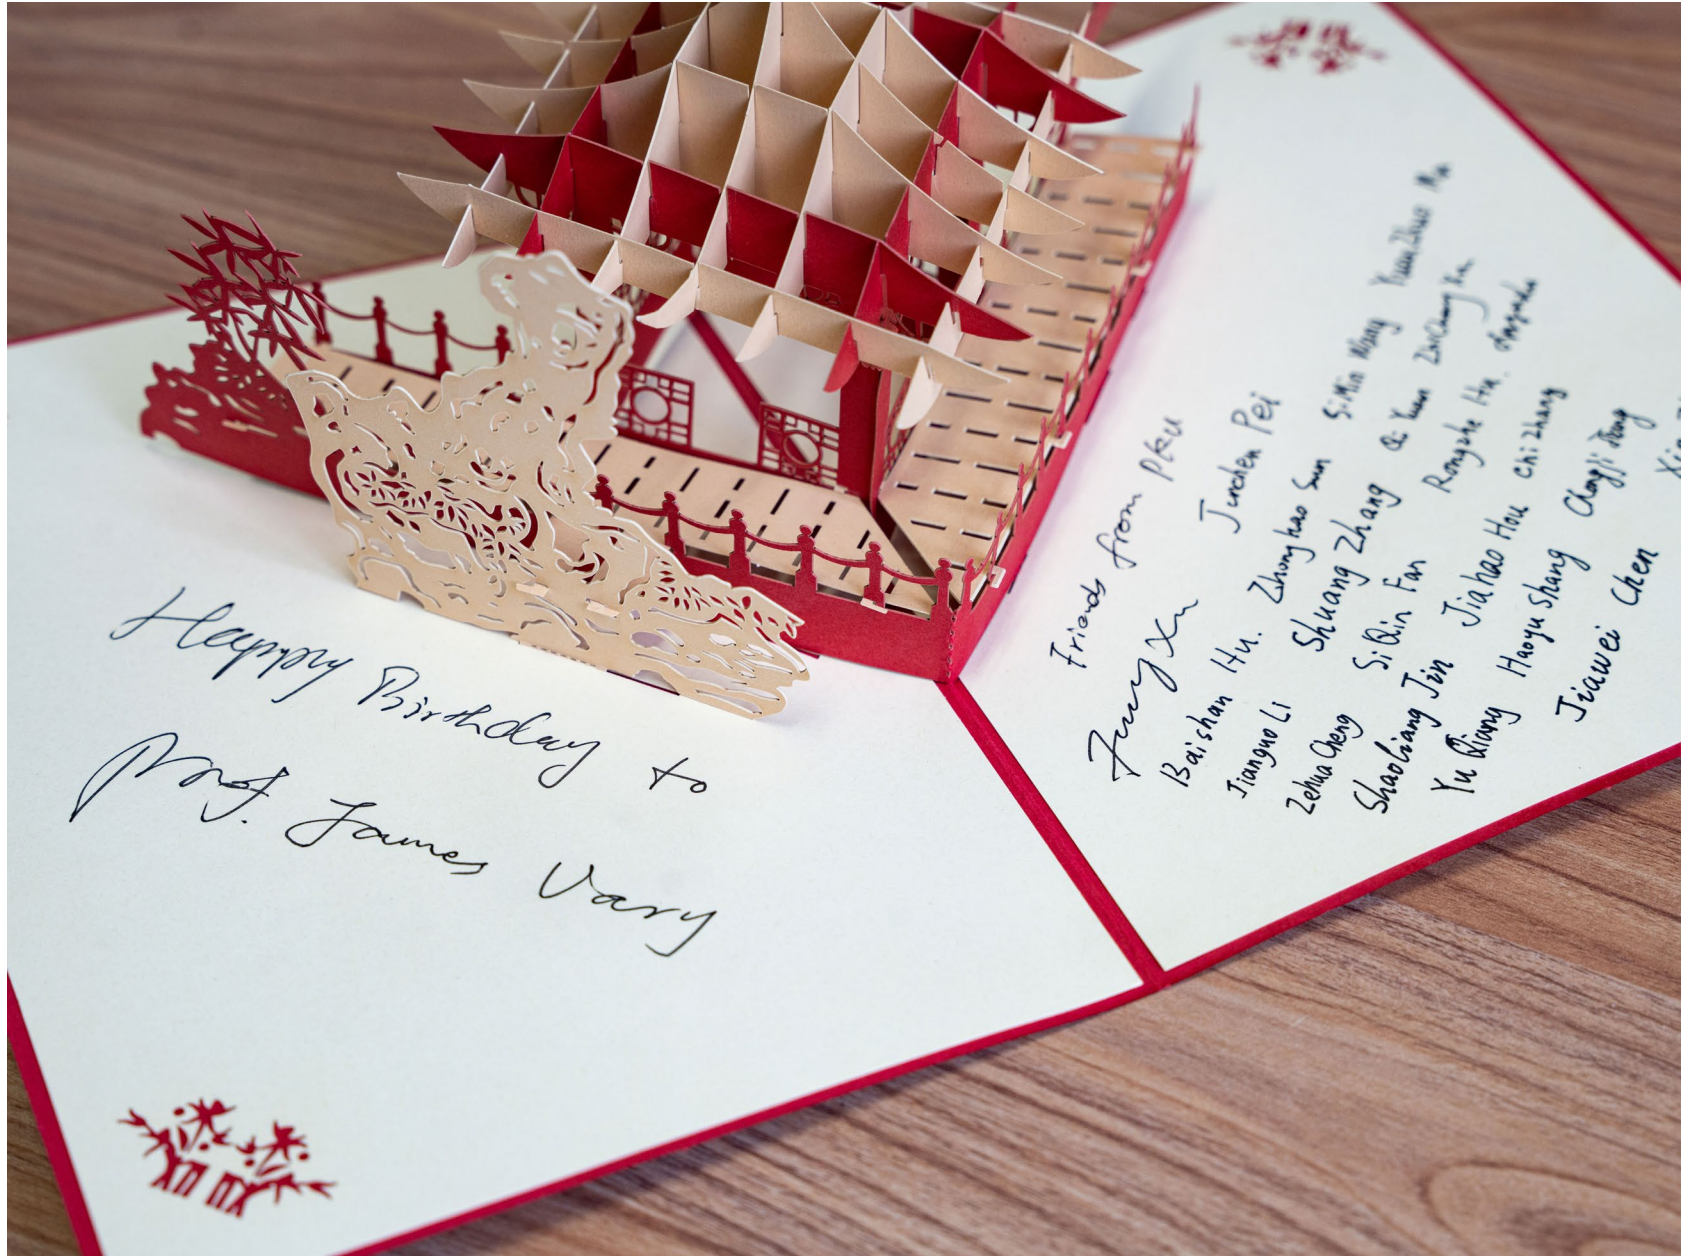 Happy Birthday to
Prof. James Vary
Friends from PKU
Furong Xu Junchen Pei
Baishan Hu. Zhonghao Sun SiMin Wang YuanZhuo Ma
Jianguo Li Shuang Zhang Qi Yuan ZhiCheng Xu
Zehua Cheng SiQin Fan Rongzhe Hu.
Shaoliang Jin Jiahao Hou Chi Zhang
Yu Qiang Haoyu Shang Chongji Jiang
Jiawei Chen